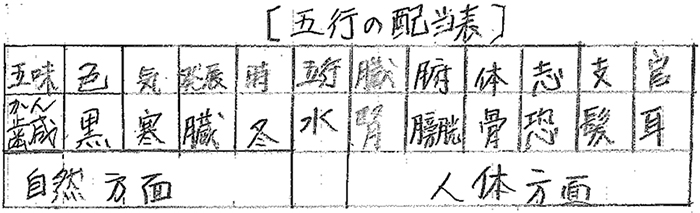 [五行の配当表]
五味 色 気 発展 時 五行 臓 腑 体 志 支 官
かん
鹹 黒 寒 臓 冬 水 腎 膀胱 骨 恐 髪 耳
自然方面 人体方面